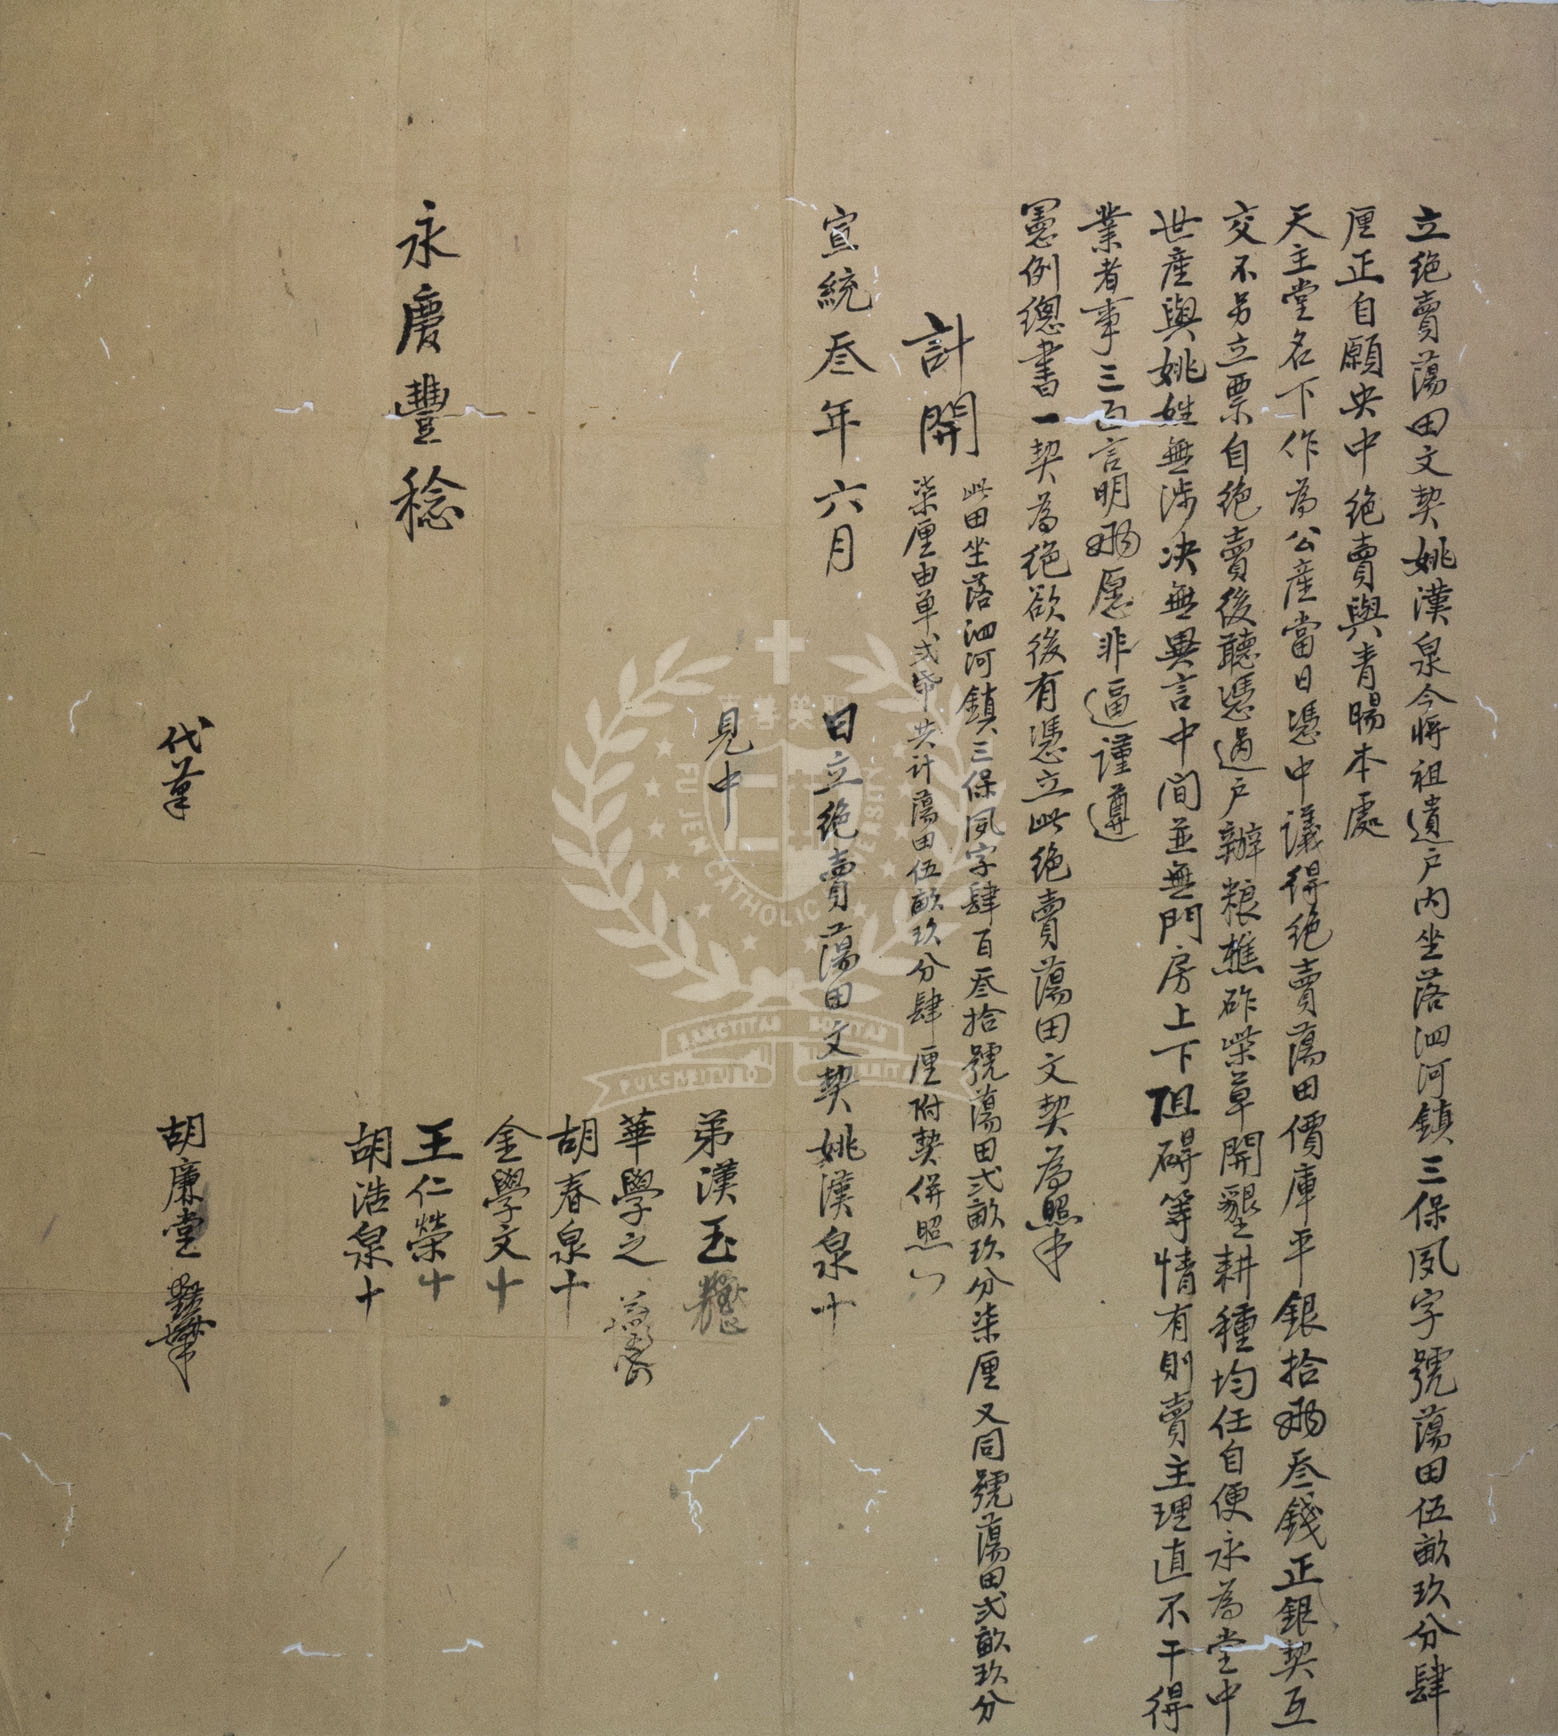 立絕賣蕩田文契姚漢泉今將祖遺戶內坐落泗河鎮三保夙字號蕩田伍畝玖分肆
厘正自願央中絕賣與青暘本處
天主堂名下作為公產當日憑中議得絕賣蕩田價庫平銀拾兩叁錢正銀契互
交不另立票自絕賣後聽憑過戶辦粮樵砟柴草開墾耕種均任自便永為堂中
世產與姚姓無涉決無異言中間並無門房上下阻碍等情有則賣主理直不干得
業者事三面言明兩愿非逼謹遵
憲例總書一契為絕欲後有憑立此絕賣蕩田文契為照
計開
此田坐落泗河鎮三保夙字肆百叁拾號蕩田弍畝玖分柒厘又同號蕩田弍畝玖分
柒厘由單弍帋共計蕩田伍畝玖分肆厘附契併照
宣統叁年六月 日立絕賣蕩田文契姚漢泉十
見中
弟漢玉
華學之
胡春泉十
金學文十
王仁榮十
胡浩泉十
永慶豐稔
代筆
胡廉堂
FU JEN CATHOLIC UNIVERSITY
SANCTITAS BONITAS
PULCHRITUDO VERITAS